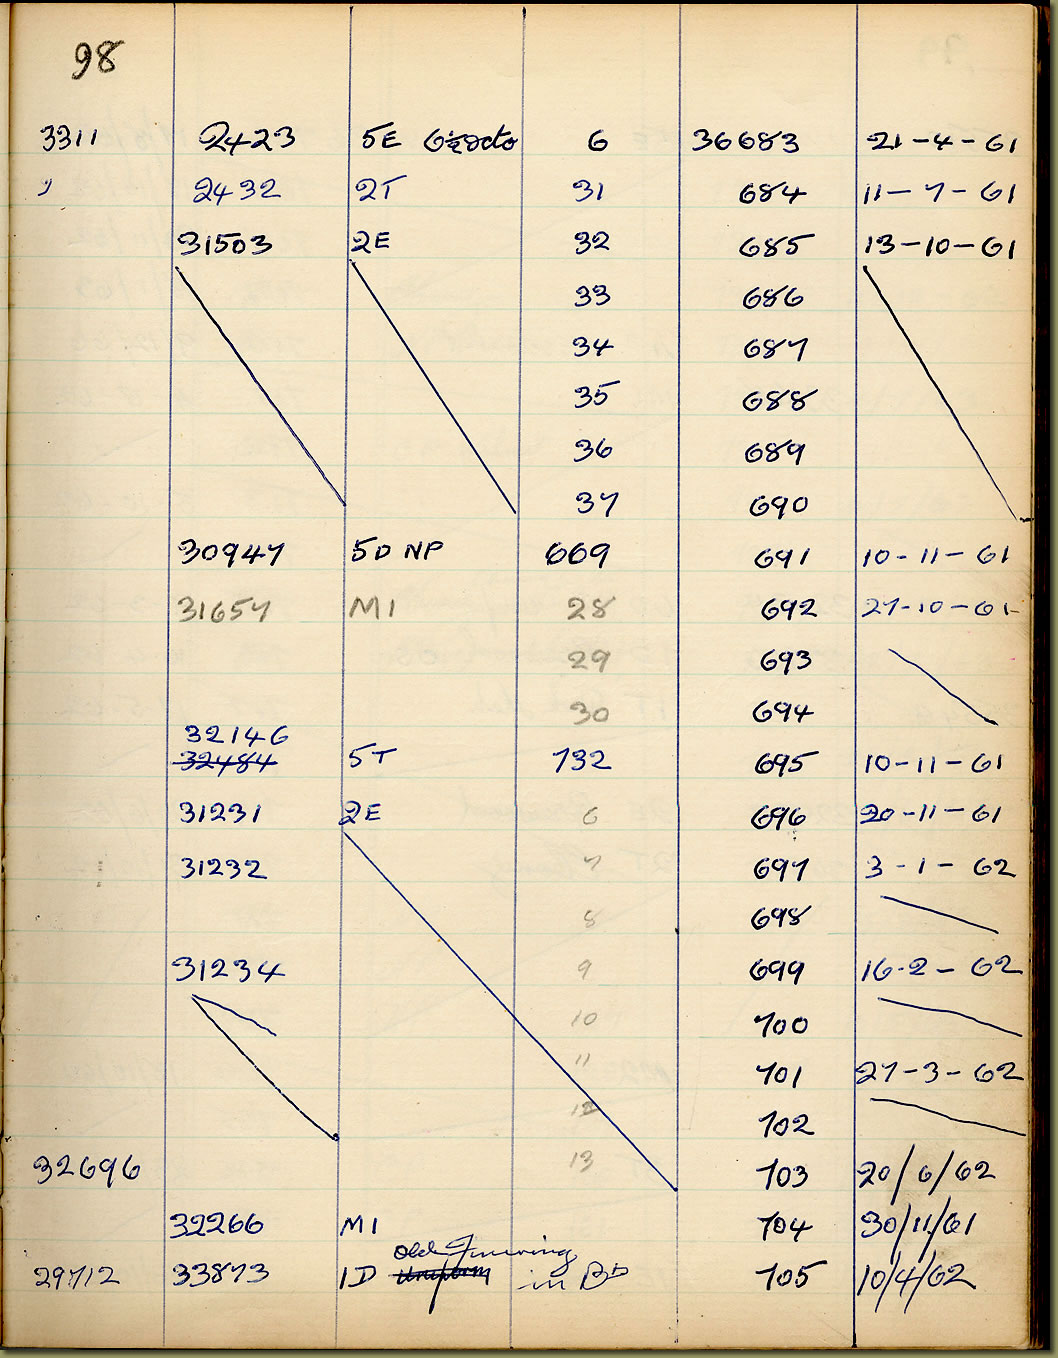 98
3311 2423 5E 6½ octo 6 36683 21-4-61
" 2432 2T 31 684 11-7-61
31503 2E 32 685 13-10-61
33 686
34 687
35 688
36 689
37 690
30947 5D NP 669 691 10-11-61
31657 M1 28 692 27-10-61
29 693
30 694
32146
32484 5T 132 695 10-11-61
31231 2E 6 696 20-11-61
31232 7 697 3-1-62
8 698
31234 9 699 16-2-62
10 700
11 701 27-3-62
12 702
32696 13 703 20/6/62
32266 M1 704 30/11/61
old
29712 33873 1D Uniform in BD 705 10/4/62